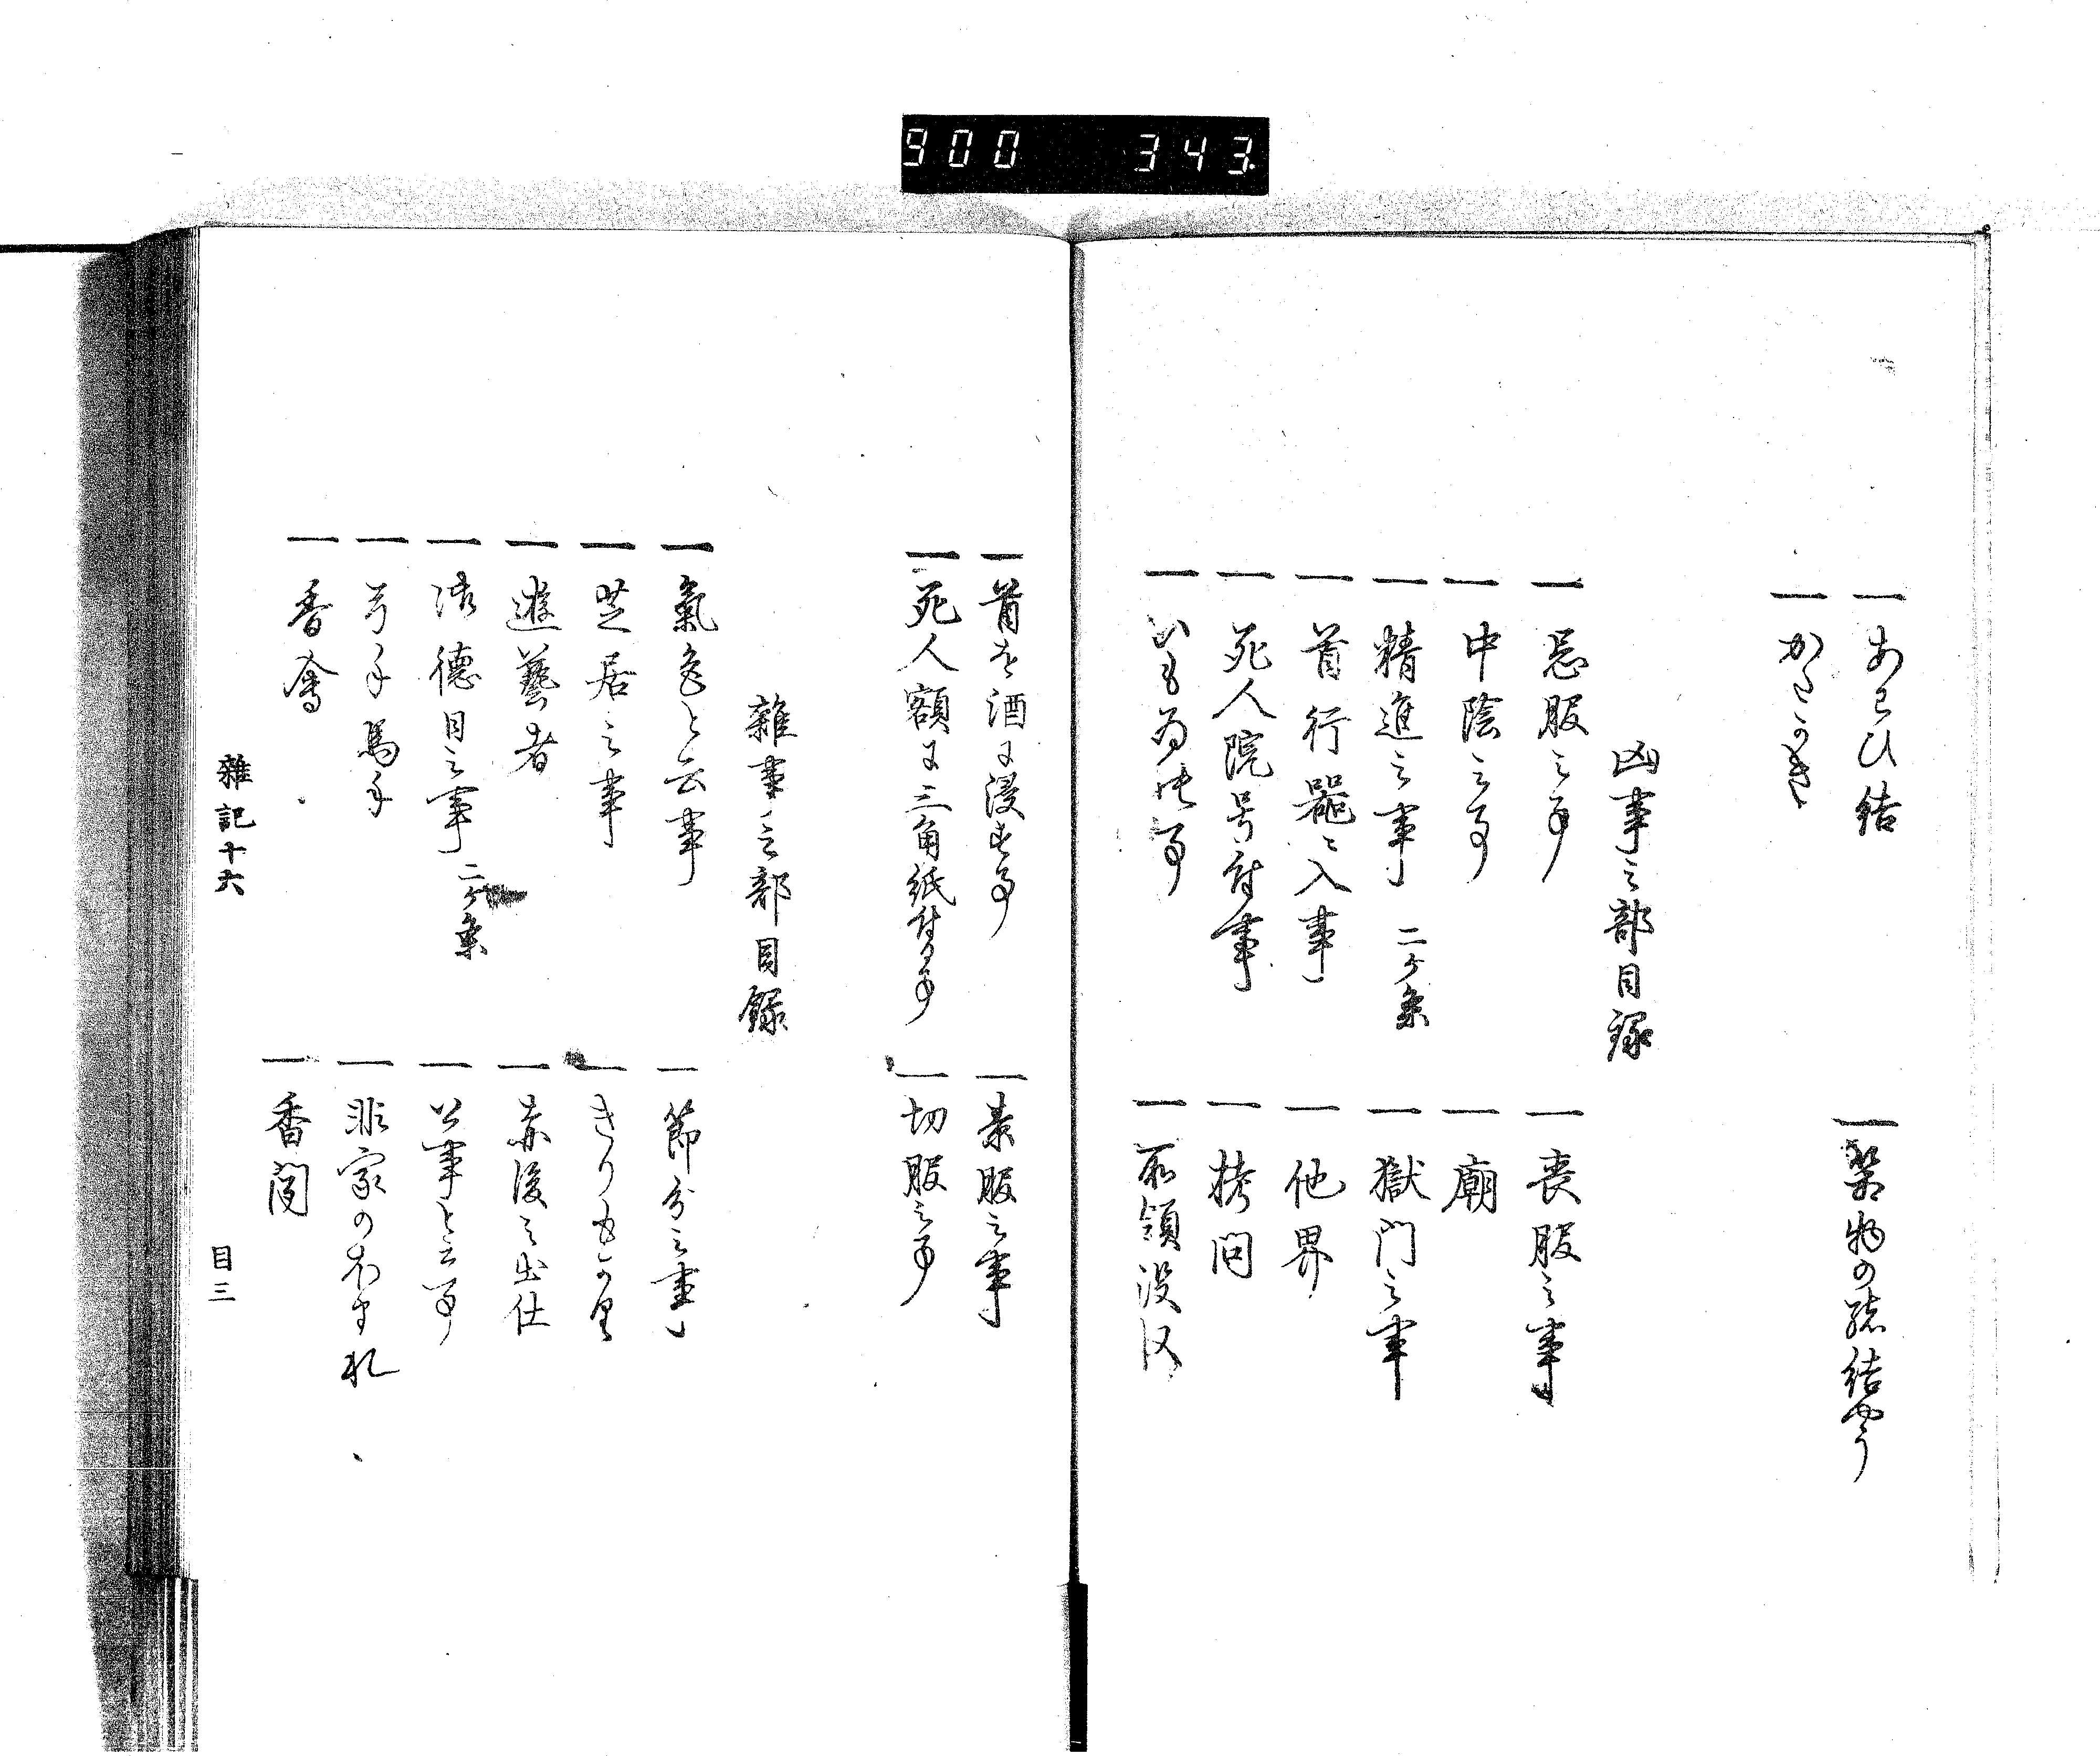 900 343
一あわひ結
一薬物の緒結やう
一かたかき
凶事之部目録
一忌服之事
一喪服之事
一中陰之事
一廟
一精進之事 二ヶ条
一獄門之事
一首行器ニ入事
一他界
一死人院号付事
一拷問
一所領没収
一首を酒に浸す事
一素服之事
一死人額に三角紙付る事
一切服之事
雑事之部目録
一氣色と云事
一節分之事
一芝居之事
一きりもぐり
一遊藝者
一赤後之出仕
一法徳目之事 二ヶ条
一公事と云事
一弓手馬手
一香會
一香閣
雑記十六 目三